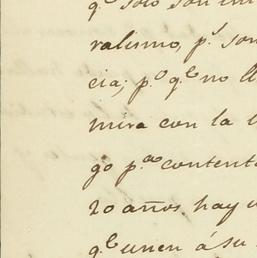 q.e solo son
ralismo, p.s son
cia; p.o q.e no ll
mira con la
go p.a contenta
20 años hay
q.e unen á su